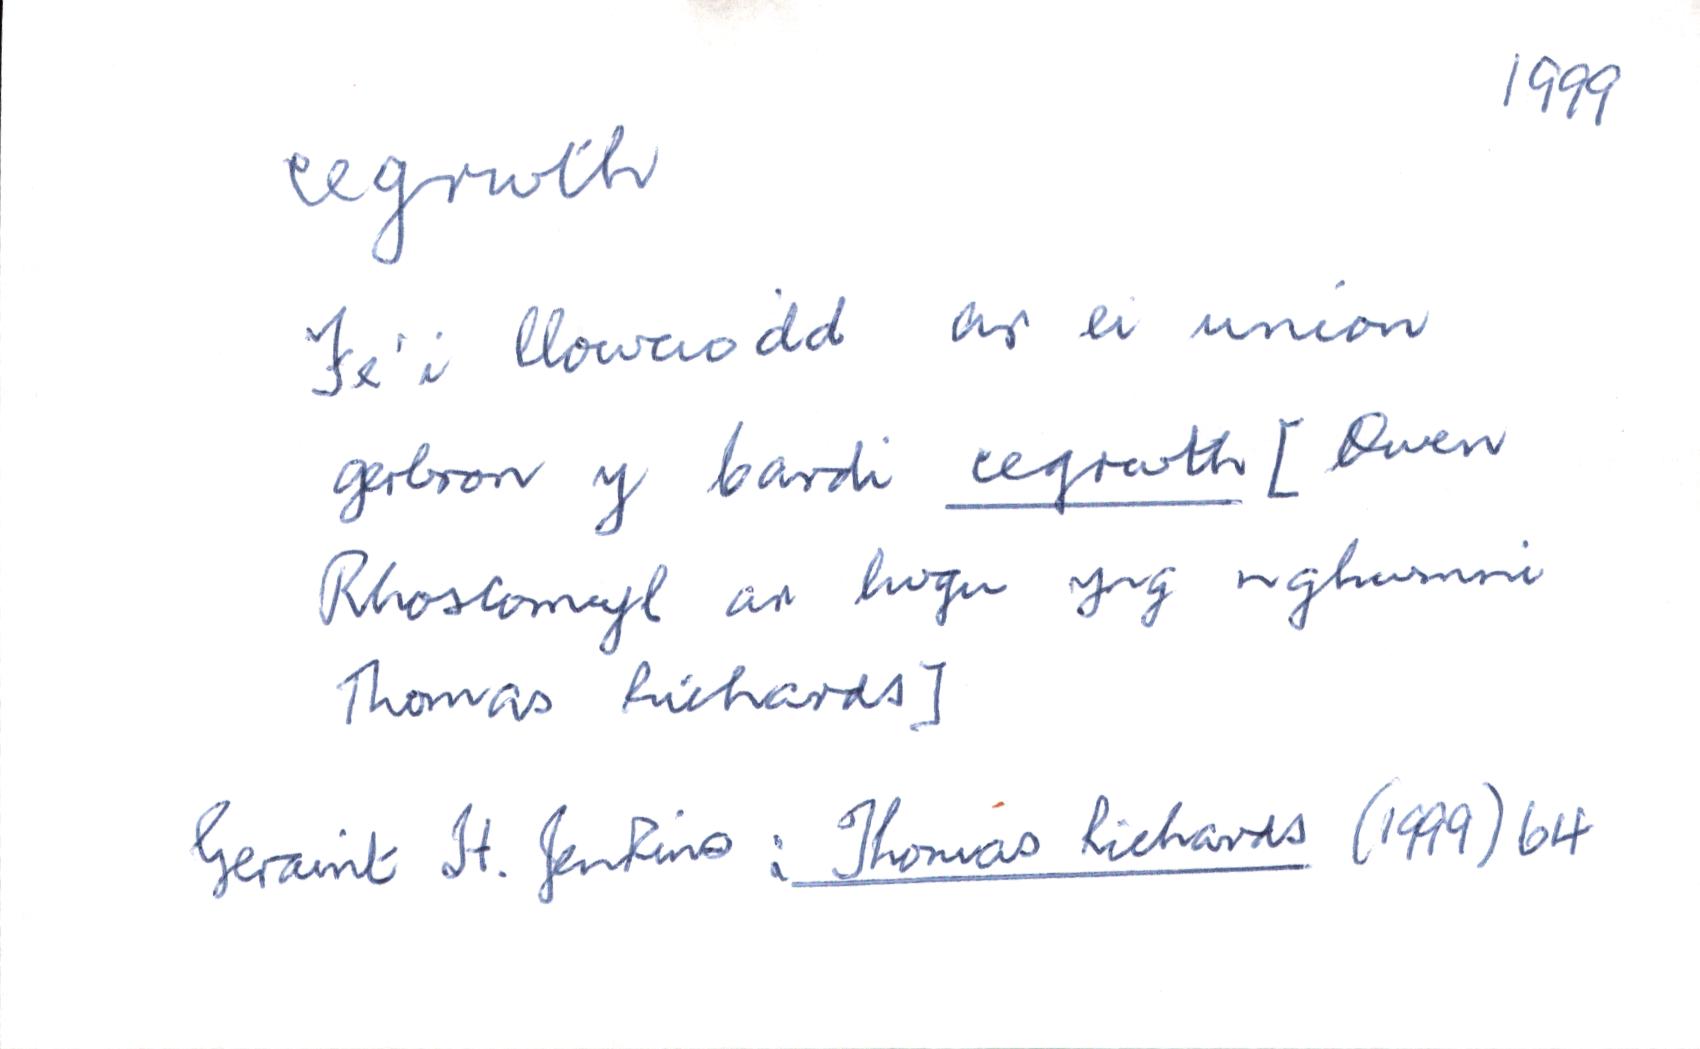 1999
cegrwth
Fe'i llowciodd ar ei union
gerbron y Cardi cegrwth [Owen
Rhoscomyl ar lwgu yng nghwmni
Thomas Richards]
Geraint H. Jenkins : Thomas Richards (1999) 64